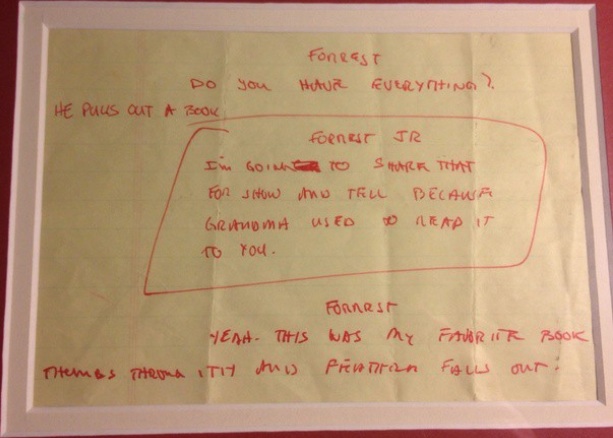 FORREST
DO YOU HAVE EVERYTHING?
HE PULLS OUT A BOOK
FORREST JR
I'm GOING TO SHARE THAT
FOR SHOW AND TELL BECAUSE
GRANDMA USED TO READ IT
TO YOU.
FORREST
YEAH. THIS WAS MY FAVORITE BOOK
AND FEATHER FALLS OUT.